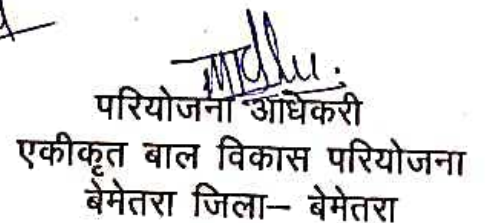 परियोजना आधेकरी
एकीकृत बाल विकास परियोजना
बेमेतरा जिला– बेमेतरा